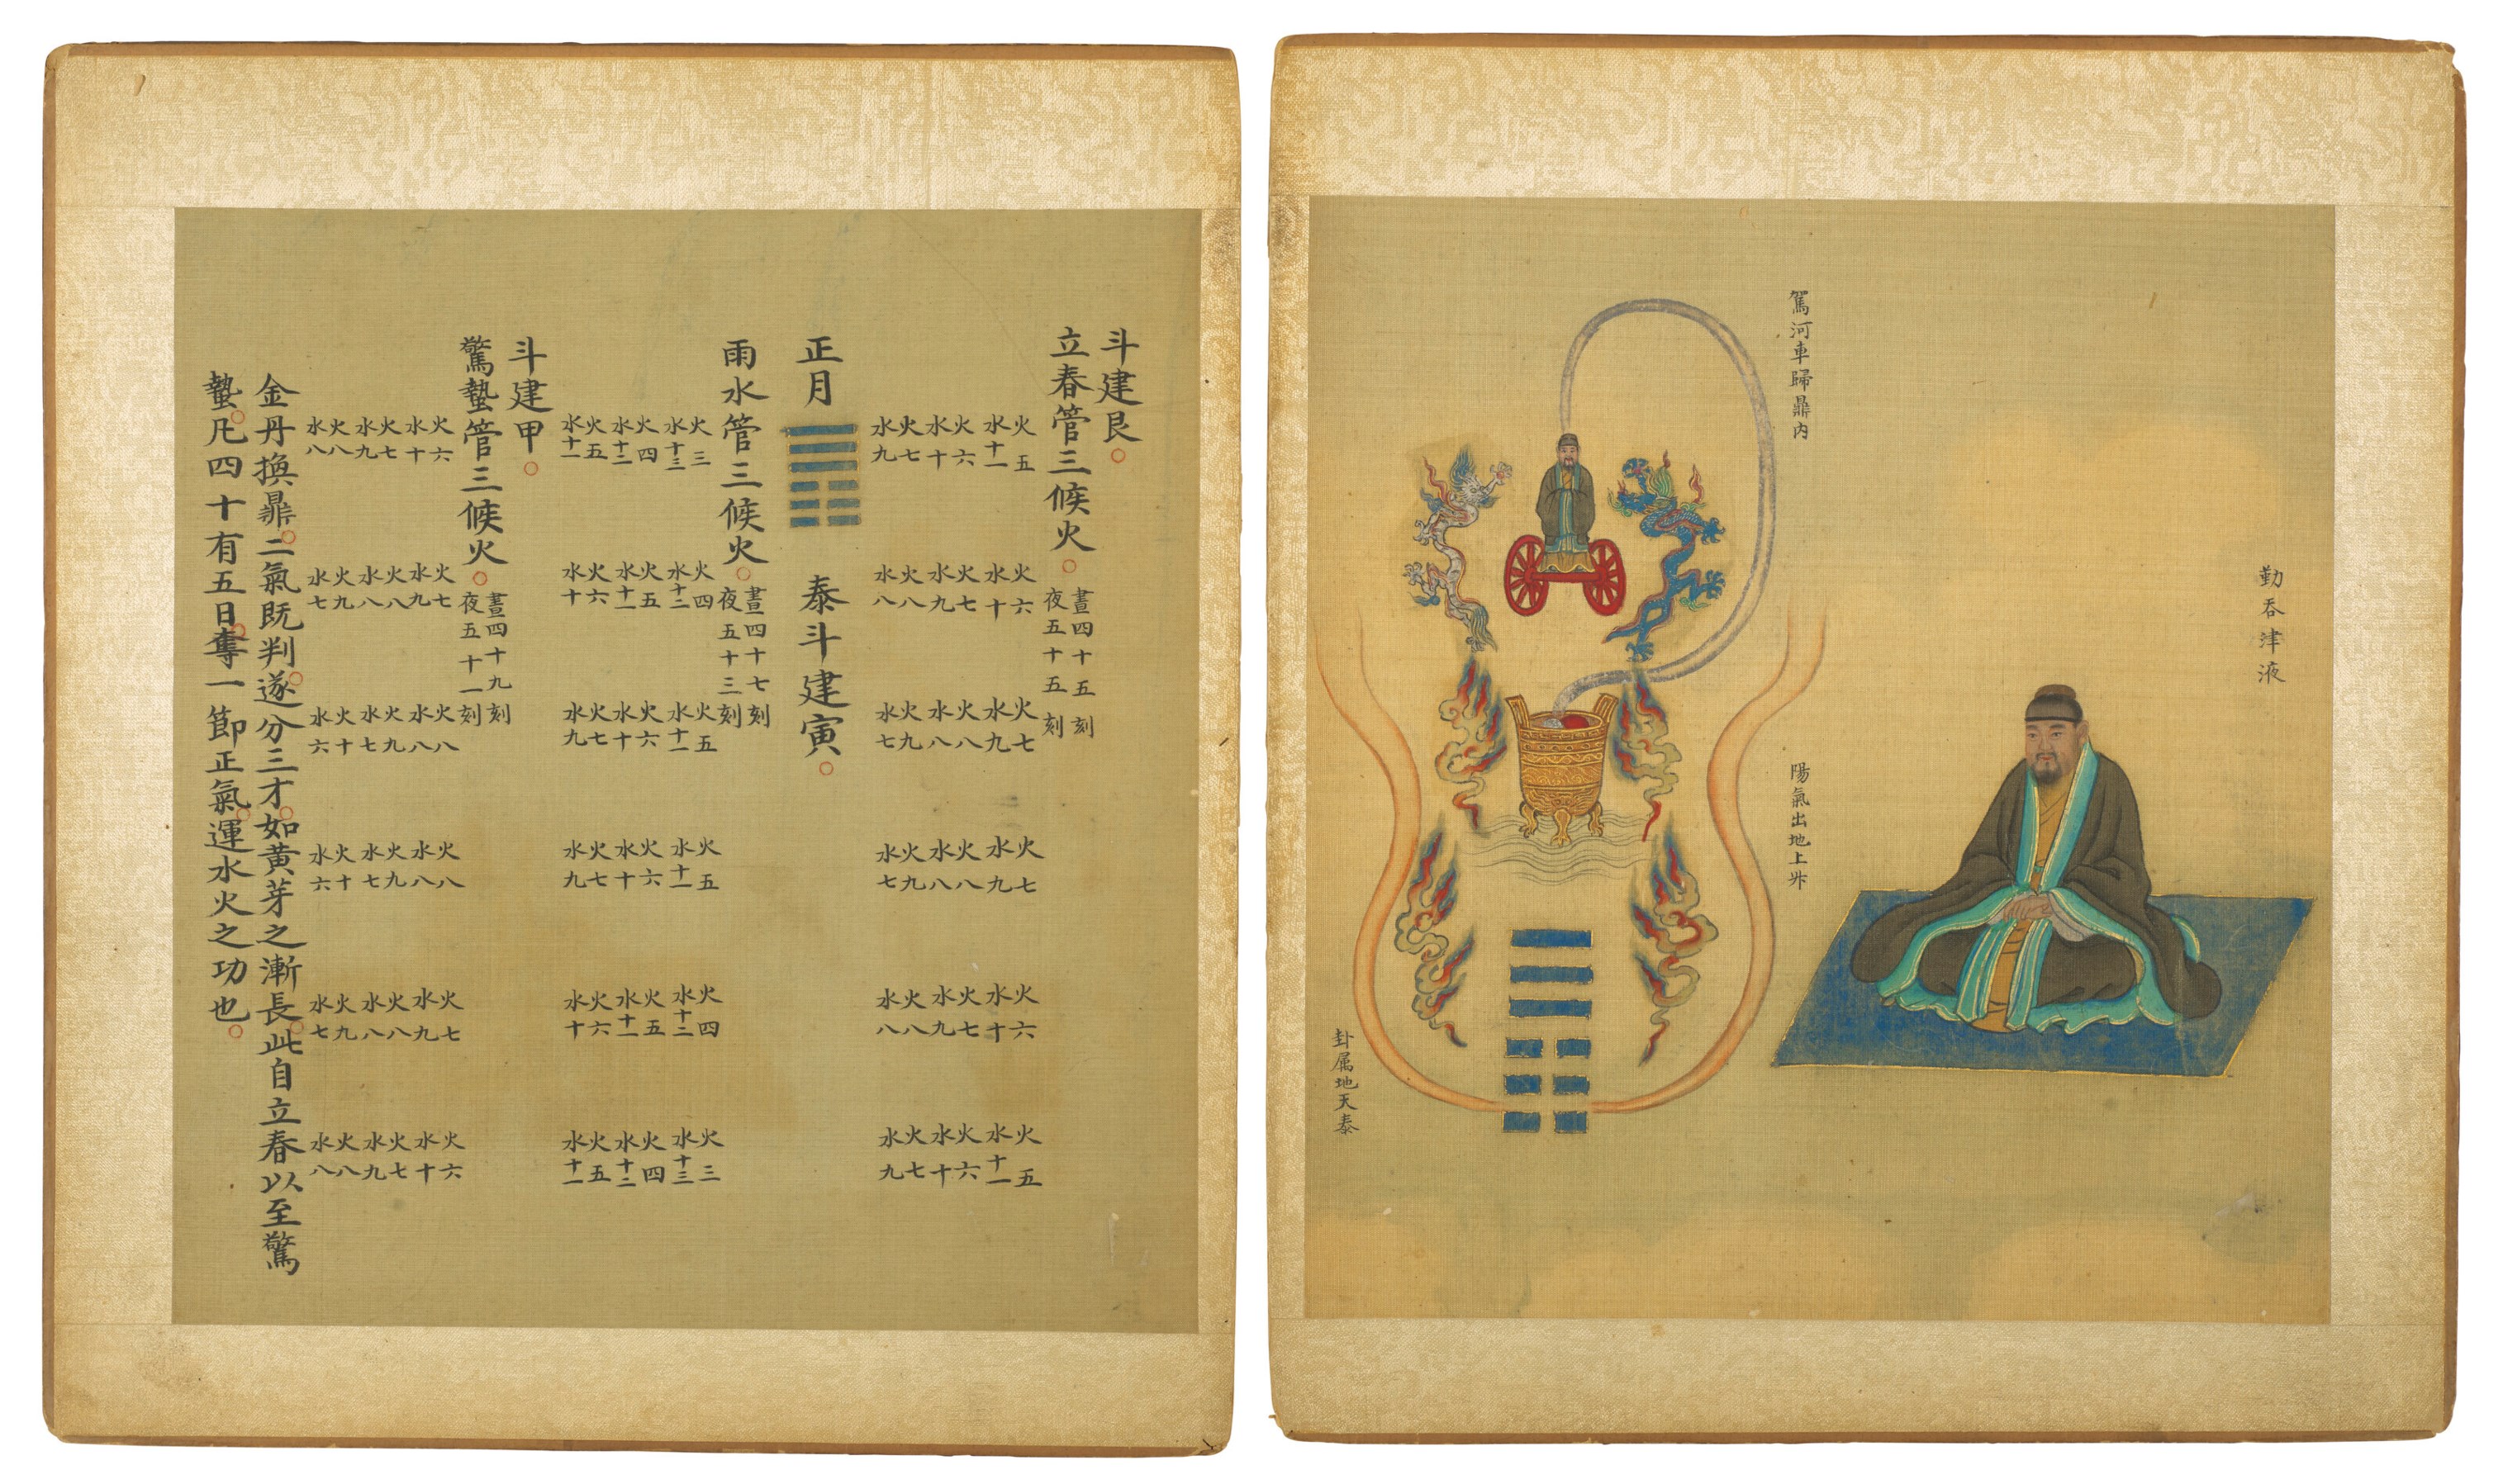 勤吞津液
駕河車歸鼎内
陽氣出地上升
卦属地天泰
斗建艮。
立春管三候火。
晝四十五刻
夜五十五刻
火五 火六 火七 火七 火六 火五
水十一 水十 水九 水九 水十 水十一
火六 火七 火八 火八 火七 火六
水十 水九 水八 水八 水九 水十
火七 火八 火九 火九 火八 火七
水九 水八 水七 水七 水八 水九
正月 泰斗建寅。
雨水管三候火。
晝四十七刻
夜五十三刻
火三 火四 火五 火五 火四 火三
水十三 水十二 水十一 水十一 水十二 水十三
火四 火五 火六 火六 火五 火四
水十二 水十一 水十 水十 水十一 水十二
火五 火六 火七 火七 火六 火五
水十一 水十 水九 水九 水十 水十一
斗建甲。
驚蟄管三候火。
晝四十九刻
夜五十一刻
火六 火七 火八 火八 火七 火六
水十 水九 水八 水八 水九 水十
火七 火八 火九 火九 火八 火七
水九 水八 水七 水七 水八 水九
火八 火九 火十 火十 火九 火八
水八 水七 水六 水六 水七 水八
金丹換鼎。二氣既判。遂分三才。如黄芽之漸長。此自立春以至驚
蟄。凡四十有五日。奪一節正氣。運水火之功也。